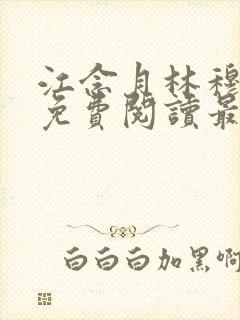 江念月林穆
免費閱讀最
白白白加黑啊